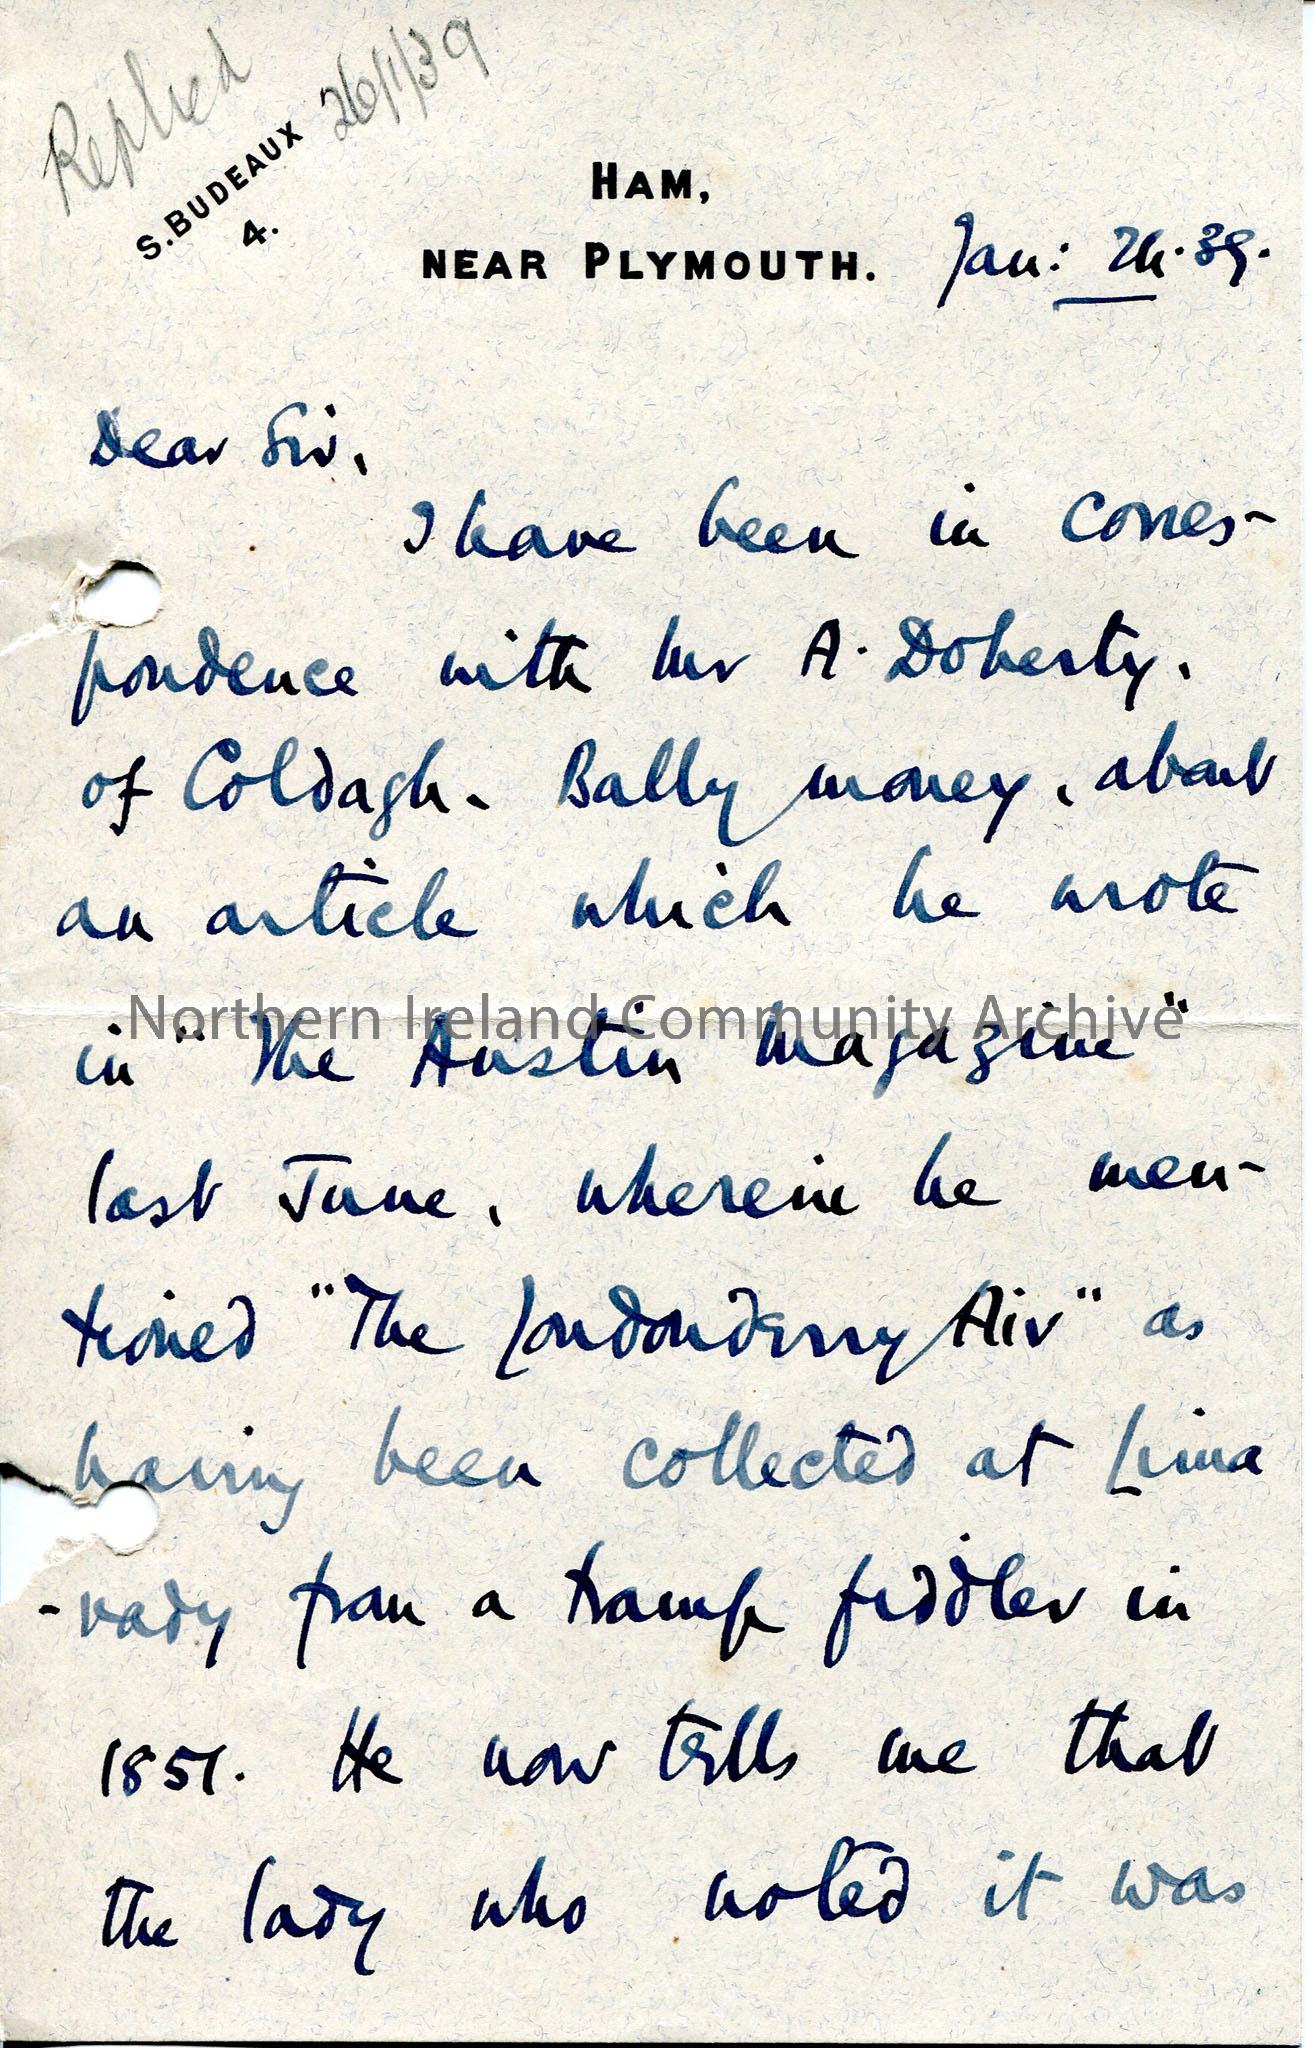 Replied 26/1/39
S. BUDEAUX
4.
HAM,
NEAR PLYMOUTH.
Jan: 24. 39.
Dear Sir,
I have been in corres-
pondence with Mr A. Doherty,
of Coldagh. Ballymoney, about
an article which he wrote
in "The Austin Magazine"
last June, wherein he men-
tioned "The Londonderry Air" as
having been collected at Lima
-vady from a tramp fiddler in
1851. He now tells me that
the lady who noted it was
Northern Ireland Community Archive